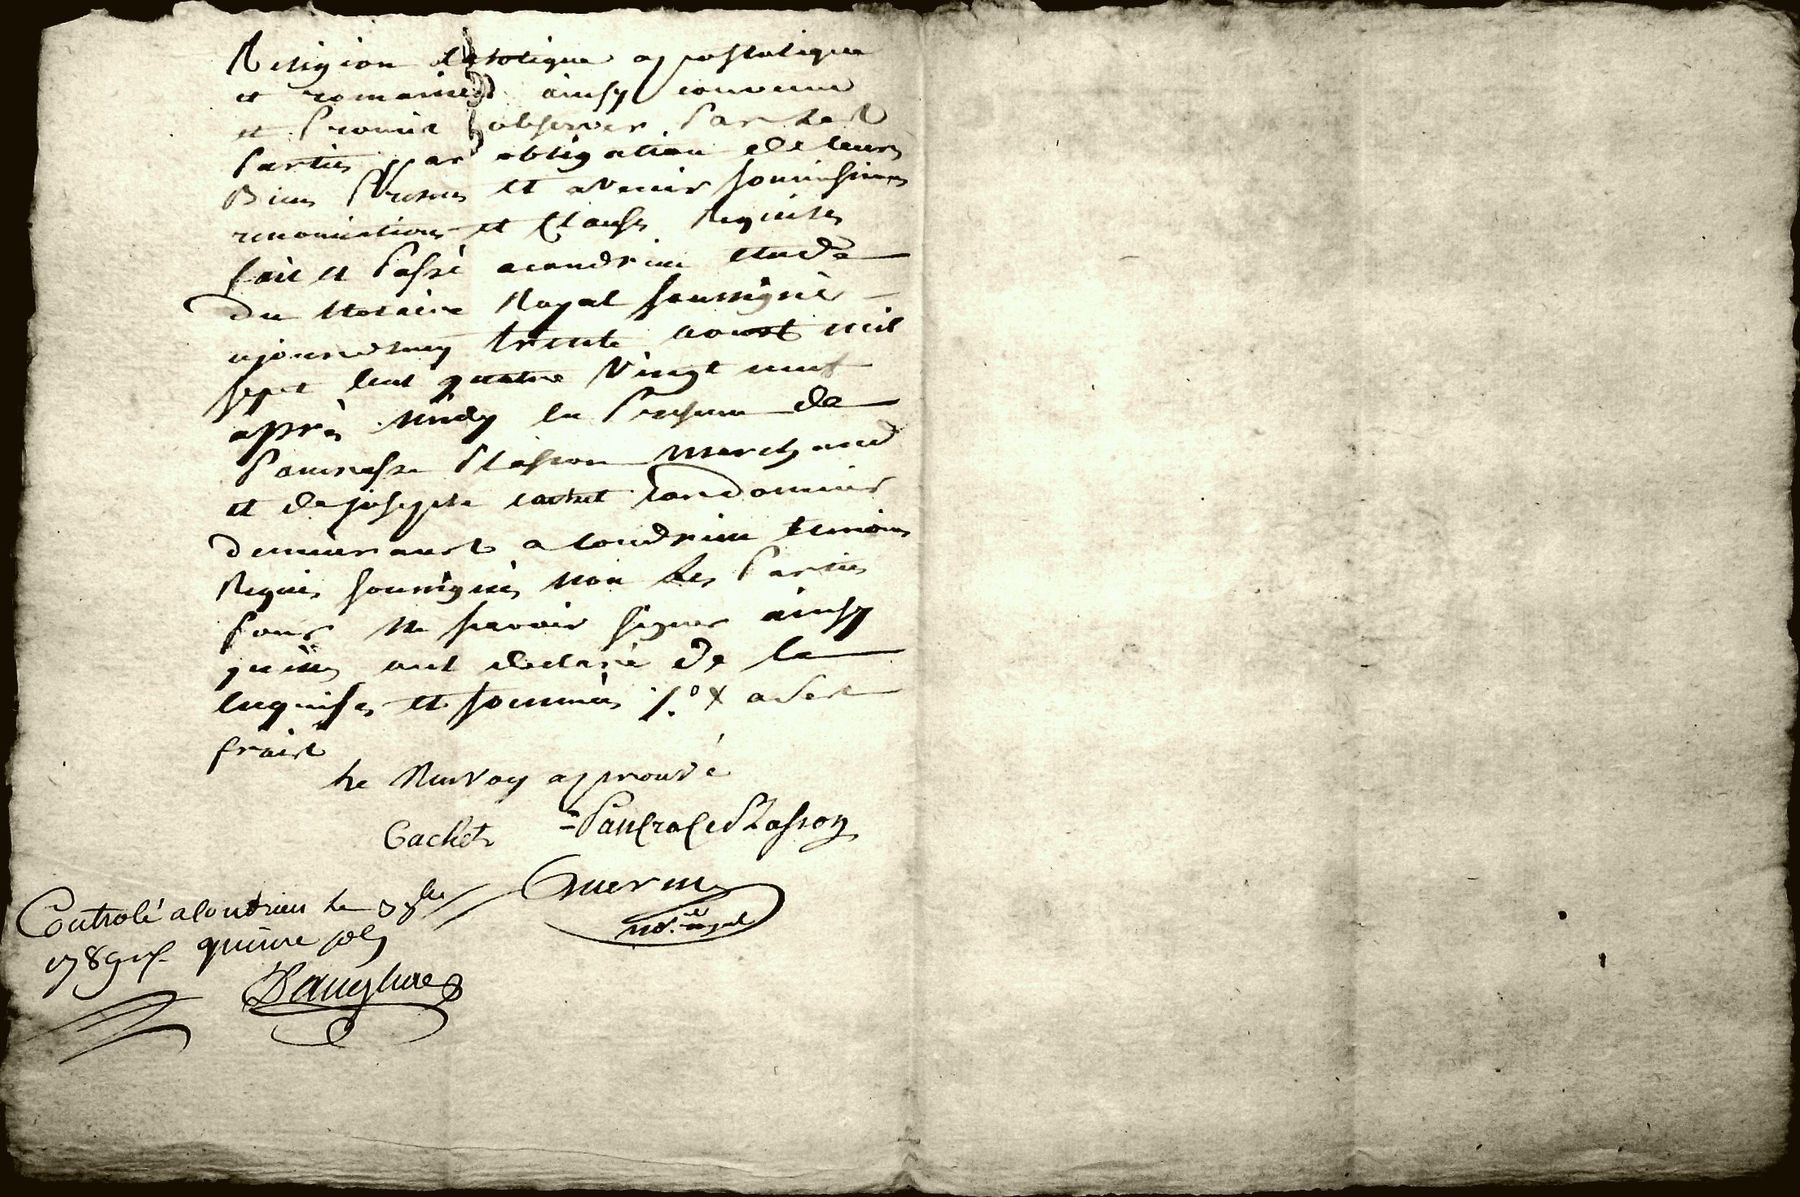 Religion catolique apostolique
et romaine ainsy convenu
et Promis observer Par les
Parties par obligation de leurs
Biens Presens et avenir soumissions
renonciations et Clauses Requises
fait et Passé acondrieu etude
du Notaire Royal soussigné
ajourdhuy trente aoust mil
sept cent quatre Vingt neuf
après midy en Presence de
Pancrasse Plasson marchand
et de joseph cachet Cordonnier
demeurant a Condrieu temoins
Requis soussignés non les Parties
Pour ne scavoir signer ainsy
quelles ont declaré de ce
enquises et sommées a Ses
frais
Le Renvoy aprouvé
Cachet Pancrace Plasson
Guerin
not. royal
Controlé a Condrieu le 3 7bre
1789 quinze sols